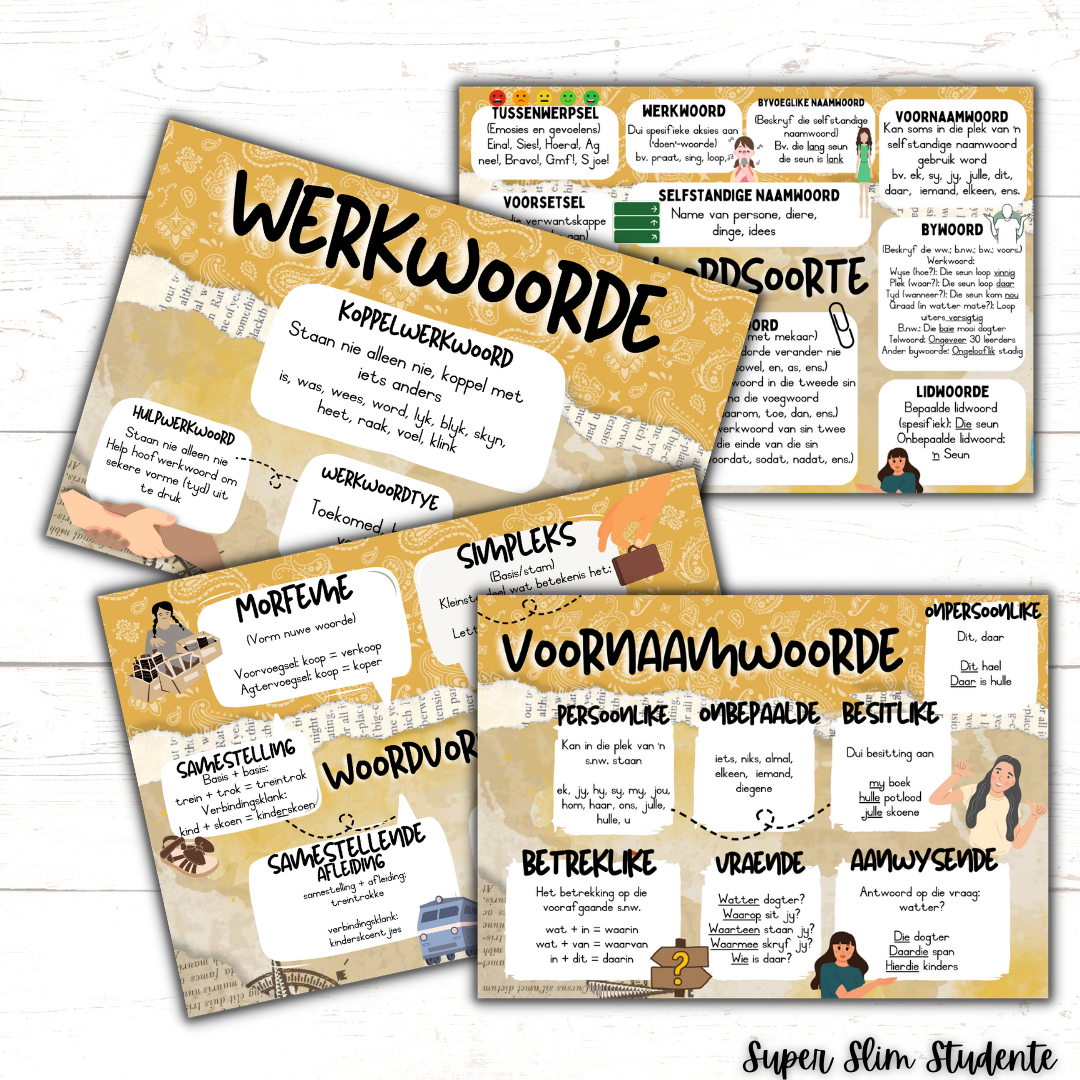 WERKWOORDE
KOPPELWERKWOORD
Staan nie alleen nie, koppel met
iets anders
is, was, wees, word, lyk, blyk, skyn,
heet, raak, voel, klink
HULPWERKWOORD
Staan nie alleen nie
Help hoofwerkwoord om
sekere vorme (tyd) uit
te druk
WERKWOORDTYE
Toekomed,
TUSSENWERPSEL
(Emosies en gevoelens)
Eina!, Sies!, Hoera!, Ag
nee!, Bravo!, Gmf!, Sjoe!
WERKWOORD
Dui spesifieke aksies aan
("doen"-woorde)
bv. praat, sing, loop,
BYVOEGLIKE NAAMWOORD
(Beskryf die selfstandige
naamwoord)
Bv. die lang seun
die seun is lank
VOORNAAMWOORD
Kan soms in die plek van 'n
selfstandige naamwoord
gebruik word
bv. ek, sy, jy, julle, dit,
daar, iemand, elkeen, ens.
VOORSETSEL
die verwantskappe
aan)
SELFSTANDIGE NAAMWOORD
Name van persone, diere,
dinge, idees
BYWOORD
(Beskryf die ww.; b.nw.; bw.; voors.)
Werkwoord:
Wyse (hoe?): Die seun loop vinnig
Plek (waar?): Die seun loop daar
Tyd (wanneer?): Die seun kom nou
Graad (in watter mate?): Loop
uiters versigtig
B.nw.: Die baie mooi dogter
Telwoord: Ongeveer 30 leerders
Ander bywoorde: Ongelooflik stadig
ORDSOORTE
OORD
met mekaar)
orde verander nie
sowel, en, as, ens.)
woord in die tweede sin
na die voegwoord
aarom, toe, dan, ens.)
werkwoord van sin twee
die einde van die sin
oordat, sodat, nadat, ens.)
LIDWOORDE
Bepaalde lidwoord
(spesifiek): Die seun
Onbepaalde lidwoord:
'n Seun
MORFEME
(Vorm nuwe woorde)
Voorvoegsel: koop = verkoop
Agtervoegsel: koop = koper
SIMPLEKS
(Basis/stam)
Kleinste deel wat betekenis het:
Lett
SAMESTELLING
Basis + basis:
trein + trok = treintrok
Verbindingsklank:
kind + skoen = kinderskoen
WOORDVOR
SAMESTELLENDE
AFLEIDING
samestelling + afleiding:
treintrokke
verbindingsklank:
kinderskoentjies
VOORNAAMWOORDE
ONPERSOONLIKE
Dit, daar
Dit hael
Daar is hulle
PERSOONLIKE
Kan in die plek van 'n
s.nw. staan
ek, jy, hy, sy, my, jou,
hom, haar, ons, julle,
hulle, u
ONBEPAALDE
iets, niks, almal,
elkeen, iemand,
diegene
BESITLIKE
Dui besitting aan
my boek
hulle potlood
julle skoene
BETREKLIKE
Het betrekking op die
voorafgaande s.nw.
wat + in = waarin
wat + van = waarvan
in + dit = daarin
VRAENDE
Watter dogter?
Waarop sit jy?
Waarteen staan jy?
Waarmee skryf jy?
Wie is daar?
AANWYSENDE
Antwoord op die vraag:
watter?
Die dogter
Daardie span
Hierdie kinders
Super Slim Studente